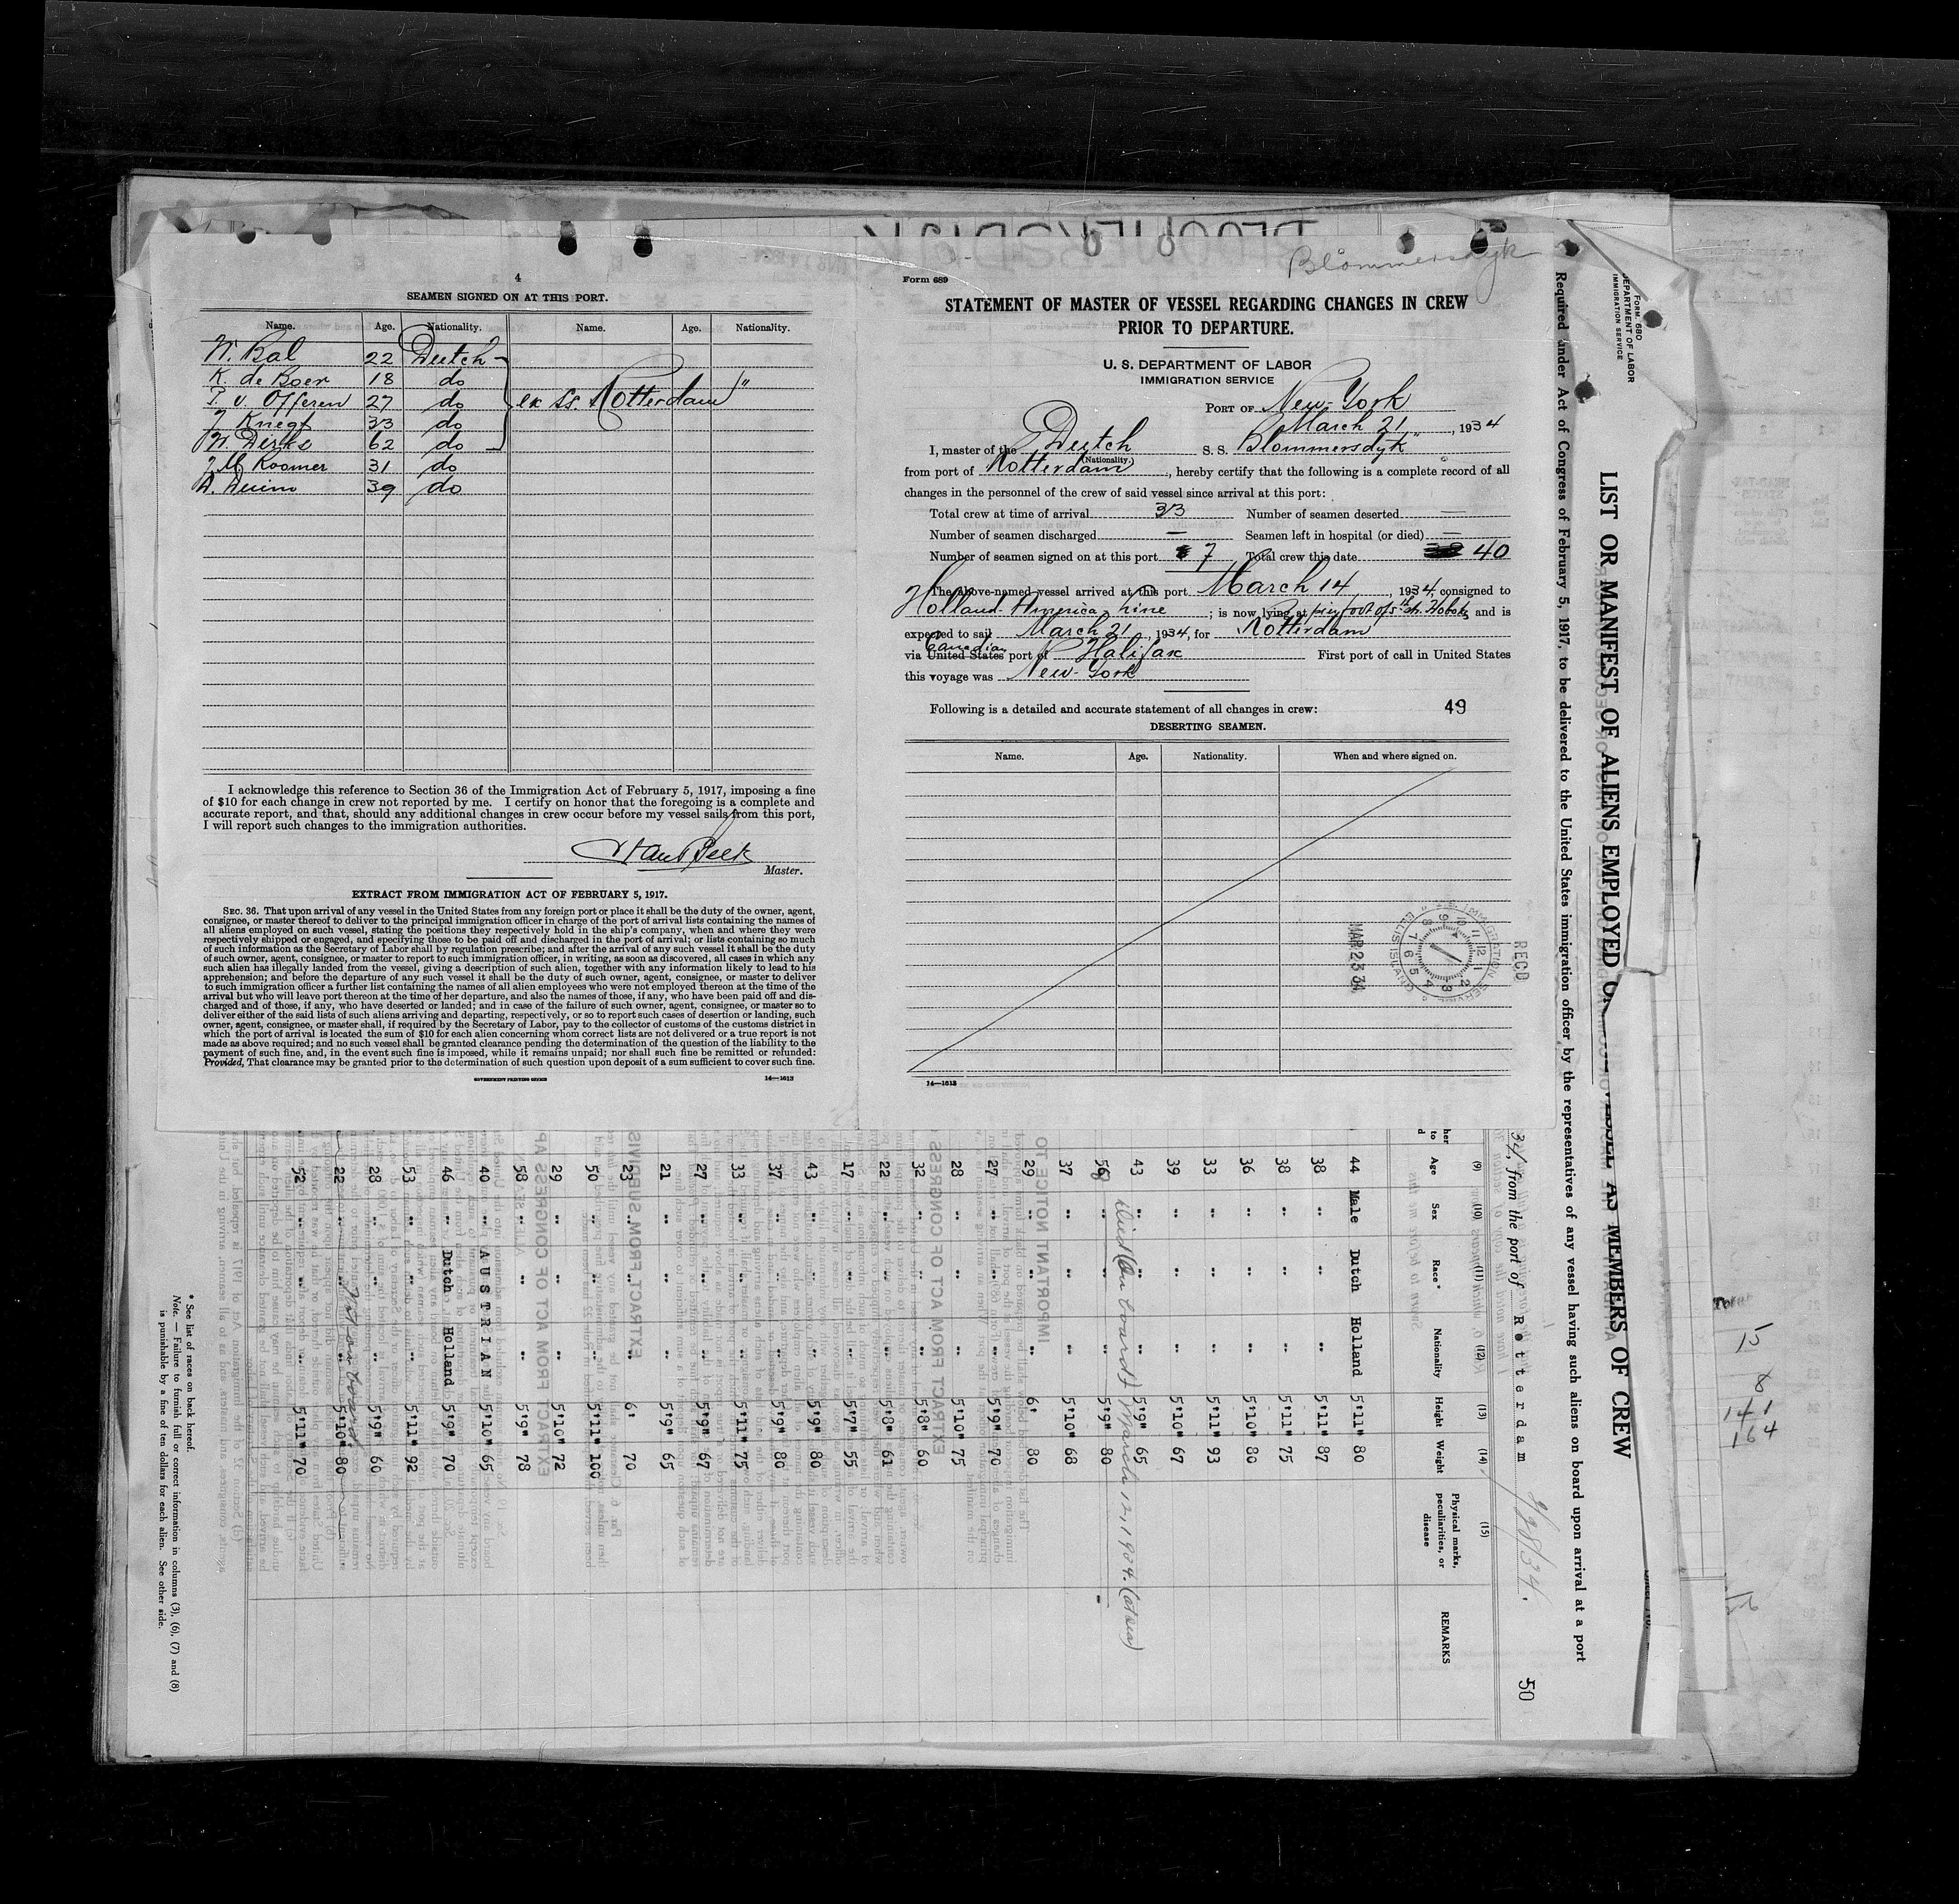 4
SEAMEN SIGNED ON AT THIS PORT.
Name. Age. Nationality. Name. Age. Nationality.
W. Bal 22 Dutch
K. de Boer 18 do
P. v. Offeren 27 do ex ss. Rotterdam"
J. Knegt 33 do
W. Derks 62 do
J. M. Roomer 31 do
A. Duim 39 do
I acknowledge this reference to Section 36 of the Immigration Act of February 5, 1917, imposing a fine
of $10 for each change in crew not reported by me. I certify on honor that the foregoing is a complete and
accurate report, and that, should any additional changes in crew occur before my vessel sails from this port,
I will report such changes to the immigration authorities.
Master.
EXTRACT FROM IMMIGRATION ACT OF FEBRUARY 5, 1917.
SEC. 36. That upon arrival of any vessel in the United States from any foreign port or place it shall be the duty of the owner, agent,
consignee, or master thereof to deliver to the principal immigration officer in charge of the port of arrival lists containing the names of
all aliens employed on such vessel, stating the positions they respectively hold in the ship's company, when and where they were
respectively shipped or engaged, and specifying those to be paid off and discharged in the port of arrival; or lists containing so much
of such information as the Secretary of Labor shall by regulation prescribe; and after the arrival of any such vessel it shall be the duty
of such owner, agent, consignee, or master to report to such immigration officer, in writing, as soon as discovered, all cases in which any
such alien has illegally landed from the vessel, giving a description of such alien, together with any information likely to lead to his
apprehension; and before the departure of any such vessel it shall be the duty of such owner, agent, consignee, or master to deliver
to such immigration officer a further list containing the names of all alien employees who were not employed thereon at the time of the
arrival but who will leave port thereon at the time of her departure, and also the names of those, if any, who have been paid off and dis-
charged and of those, if any, who have deserted or landed; and in case of the failure of such owner, agent, consignee, or master so to
deliver either of the said lists of such aliens arriving and departing, respectively, or so to report such cases of desertion or landing, such
owner, agent, consignee, or master shall, if required by the Secretary of Labor, pay to the collector of customs of the customs district in
which the port of arrival is located the sum of $10 for each alien concerning whom correct lists are not delivered or a true report is not
made as above required; and no such vessel shall be granted clearance pending the determination of the question of the liability to the
payment of such fine, and, in the event such fine is imposed, while it remains unpaid; nor shall such fine be remitted or refunded:
Provided, That clearance may be granted prior to the determination of such question upon deposit of a sum sufficient to cover such fine.
GOVERNMENT PRINTING OFFICE 14—1613
Blommersdyk
Form 689
STATEMENT OF MASTER OF VESSEL REGARDING CHANGES IN CREW
PRIOR TO DEPARTURE.
U. S. DEPARTMENT OF LABOR
IMMIGRATION SERVICE
PORT OF New-York
March 21, 1934
I, master of the Dutch S. S. Blommersdyk"
(Nationality.)
from port of Rotterdam, hereby certify that the following is a complete record of all
changes in the personnel of the crew of said vessel since arrival at this port:
Total crew at time of arrival 33 Number of seamen deserted —
Number of seamen discharged — Seamen left in hospital (or died) —
Number of seamen signed on at this port 7 Total crew this date 40
The above-named vessel arrived at this port March 14, 1934, consigned to
Holland-America Line; is now lying at pier foot of 5th st. Hobok, and is
expected to sail March 21, 1934, for Rotterdam
Canadian
via United States port of Halifax First port of call in United States
this voyage was New-York
Following is a detailed and accurate statement of all changes in crew: 49
DESERTING SEAMEN.
Name. Age. Nationality. When and where signed on.
RECD
IMMIGRATION SERVICE
ELLIS ISLAND
MAR 23 34
14—1613
FORM 680
DEPARTMENT OF LABOR
IMMIGRATION SERVICE
LIST OR MANIFEST OF ALIENS EMPLOYED ON VESSEL AS MEMBERS OF CREW
Required under Act of Congress of February 5, 1917, to be delivered to the United States immigration officer by the representatives of any vessel having such aliens on board upon arrival at a port
, from the port of Rotterdam.
50
(9) (10) (11) (12) (13) (14) (15)
Age Sex Race* Nationality Height Weight Physical marks, peculiarities, or disease REMARKS
44 Male Dutch Holland 5'11" 80
38 " " " 5'11" 87
38 " " " 5'11" 75
36 " " " 5'10" 80
33 " " " 5'11" 93
39 " " " 5'10" 67
43 " " " 5'9" 65
Died (on board) March 12, 1934. (at sea)
" " " 5'9" 80
37 " " " 5'10" 68
29 " " " 6' 80
27 " " " 5'9" 70
28 " " " 5'10" 75
32 " " " 5'8" 60
22 " " " 5'8" 61
17 " " " 5'7" 55
43 " " " 5'9" 80
37 " " " 5'9" 80
33 " " " 5'11" 75
27 " " " 5'9" 67
21 " " " 5'9" 65
23 " " " 6' 70
50 " " " 5'11" 100
29 " " " 5'10" 72
58 " " " 5'9" 78
40 " AUSTRIAN 5'10" 65
46 " Dutch Holland 5'9" 70
53 " " " 5'11" 92
28 " " " 5'9" 60
22 " " " 5'10" 80
Not on board
52 " " " 5'11" 70
* See list of races on back hereof.
Note.—Failure to furnish full or correct information in columns (3), (6), (7) and (8)
is punishable by a fine of ten dollars for each alien. See other side.
Total
15
8
141
164